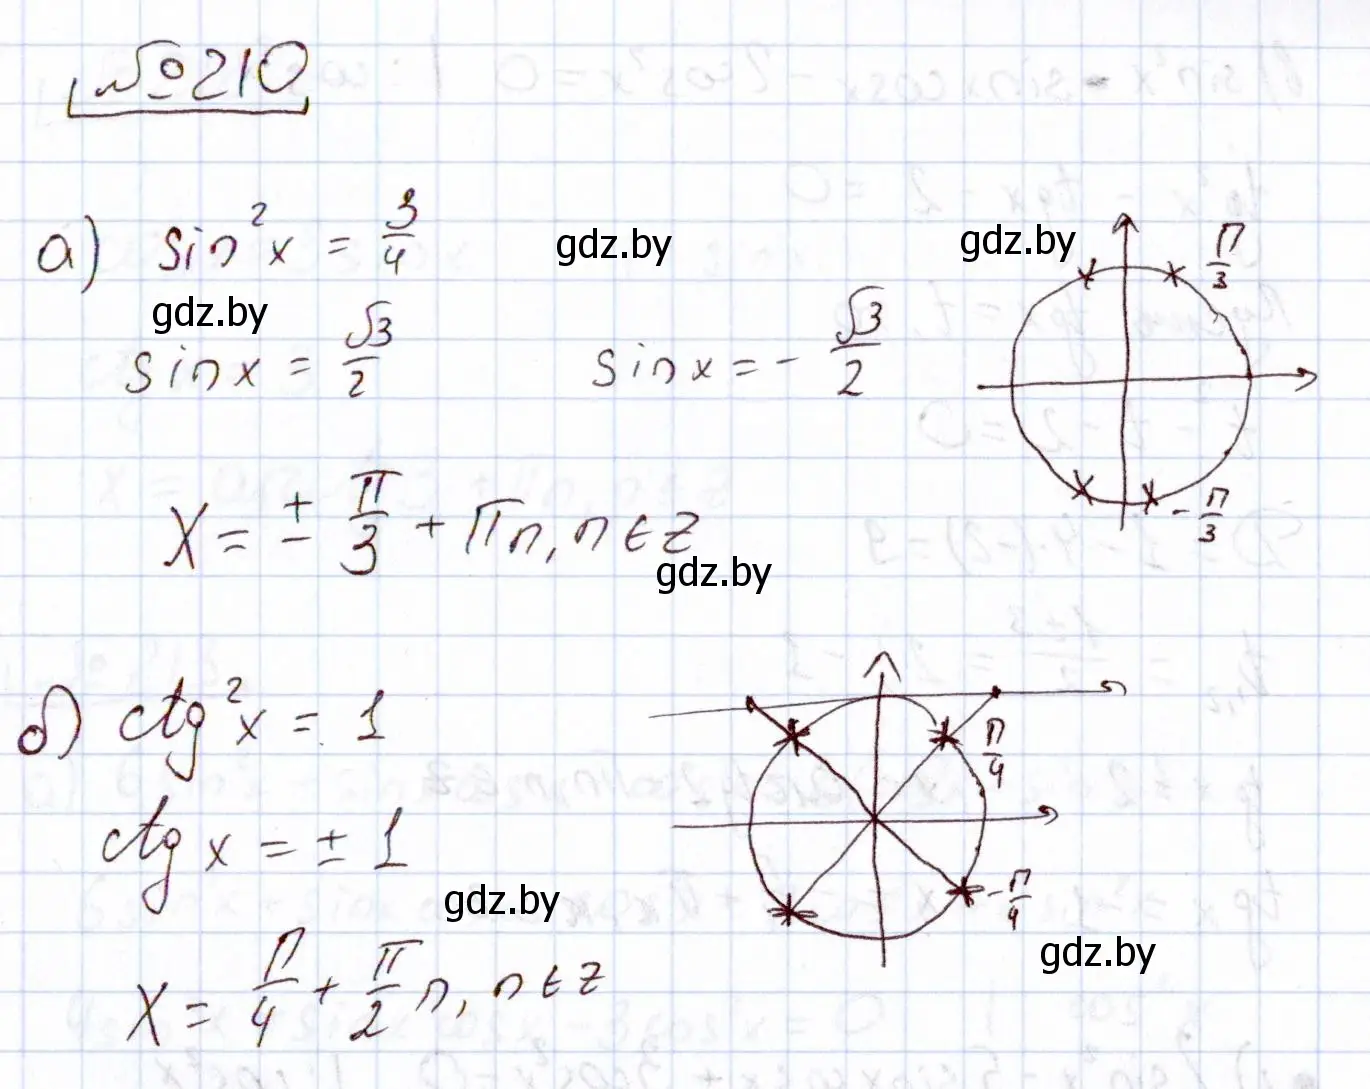 №210
а) sin²x = 3/4
gdz.by
gdz.by
π/3
gdz.by
sinx = √3/2
sinx = - √3/2
x = ± π/3 + πn, n ∈ Z
- π/3
gdz.by
б) ctg²x = 1
π/4
ctg x = ± 1
gdz.by
- π/4
gdz.by
x = π/4 + π/2 n, n ∈ Z